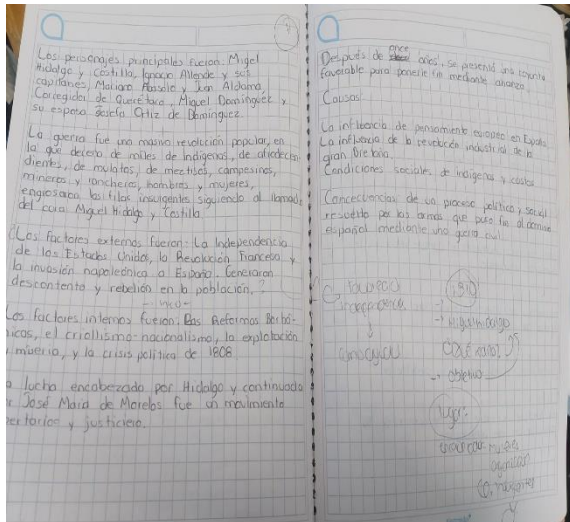 Los personajes principales fueron: Migel
Hidalgo y Costilla, Ignacio Allende y sus
capitanes, Mariano Abasolo y Juan Aldama,
Corregidor de Querétaro, Miguel Domínguez y
su esposa Josefa Ortiz de Domínguez.
La guerra fue una masiva revolución popular, en
la que decena de miles de indígenas, de afrodecen
dientes, de mulatos, de mestizos, campesinos,
mineros y rancheros, hombres y mujeres,
engrosaron las filas insurgentes siguiendo al llamado
del cura Miguel Hidalgo y Costilla
¿Los factores externos fueron: La Independencia
de los Estados Unidos, la Revolución Francesa y
la invasión napoleónica a España. Generaron
descontento y rebelión en la población.?
Los factores internos fueron: Las Reformas Borbó-
nicos, el criollismo-nacionalismo, la explotación
y miseria, y la crisis política de 1808
a lucha encabezado por Hidalgo y continuada
r José María de Morelos fue un movimiento
ertario y justiciero.
Después de once años, se presentó una coyuntura
favorable para ponerle fin mediante alianza.
Causas:
La infleencia de pensamiento europeo en España
La influencia de la revolución industrial de la
gran Bretaña.
Condiciones sociales de indígenas y castas
Concecuencias de un proceso político y social
resuelto por las armas que puso fin al dominio
español mediante una guerra civil.
1810
→ Miguel Hidalgo
→ objetivo